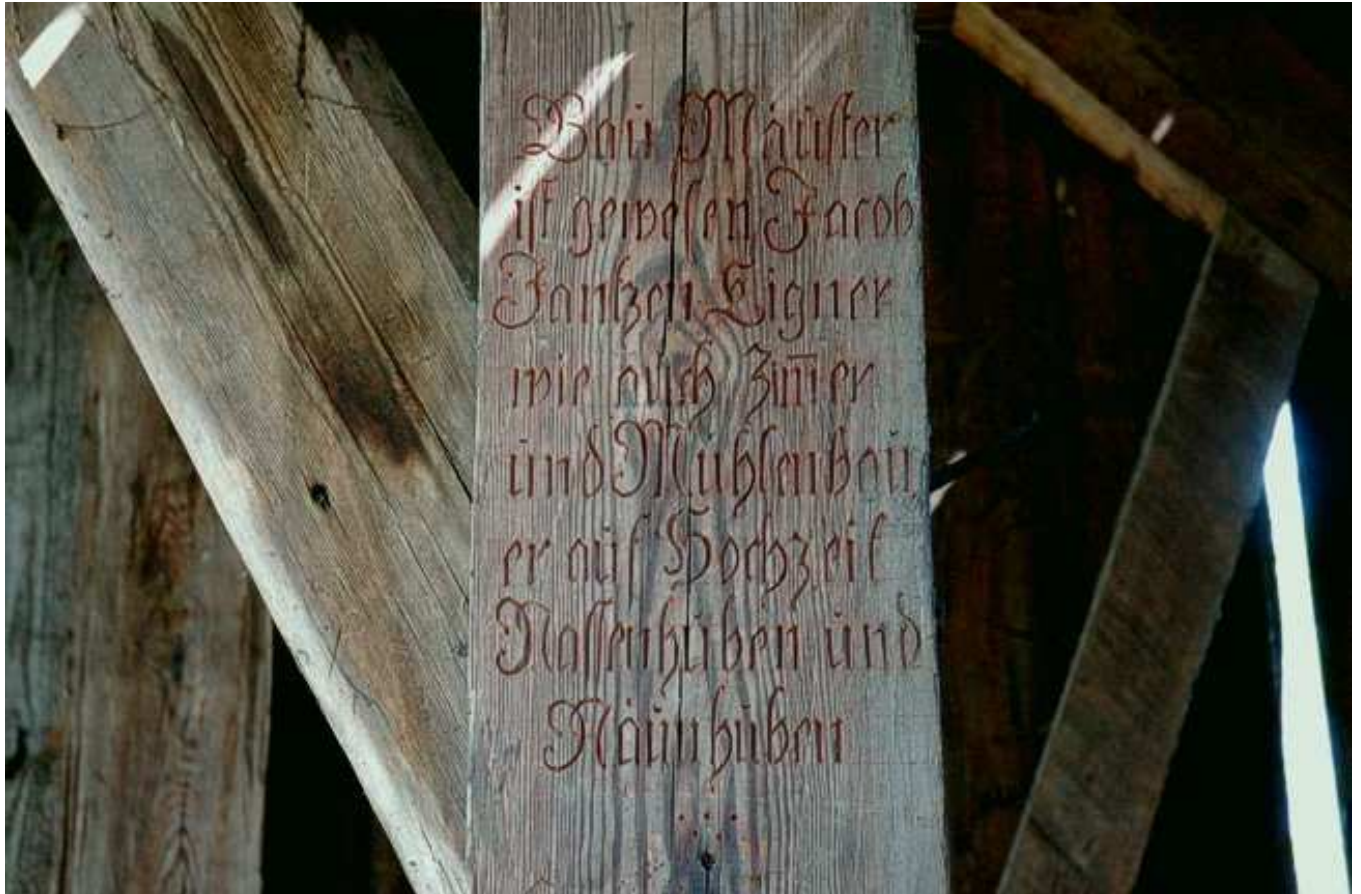 Bau Mäuster
ist gewesen Jacob
Jantzen Eigner
wie auch Zim̅er
und Mühlenbau
er auf Hochzeit
Nassenhuben und
Näunhuben